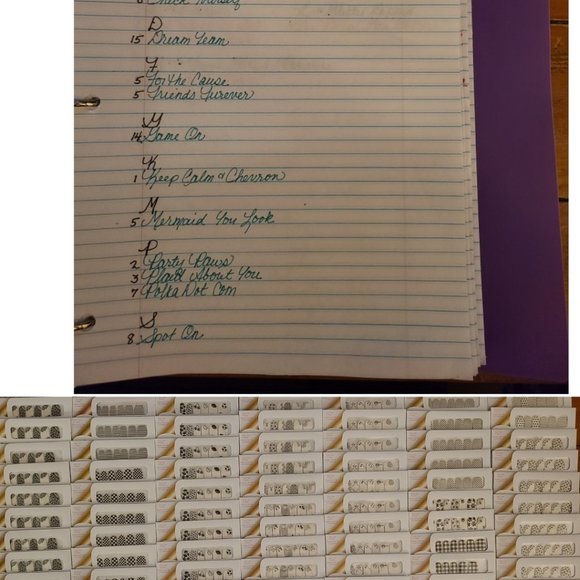 6 Check Yourself
D
15 Dream Team
F
5 For the Cause
5 Friends Furever
G
14 Game On
K
1 Keep Calm & Chevron
M
5 Mermaid You Look
P
2 Party Paws
3 Plaid About You
7 Polka Dot Com
S
8 Spot On